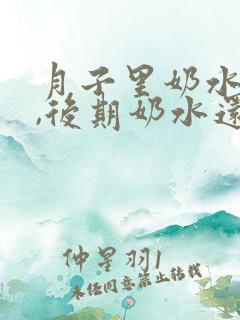 月子里奶水
,后期奶水还
仲星羽1
未经同意禁止转载